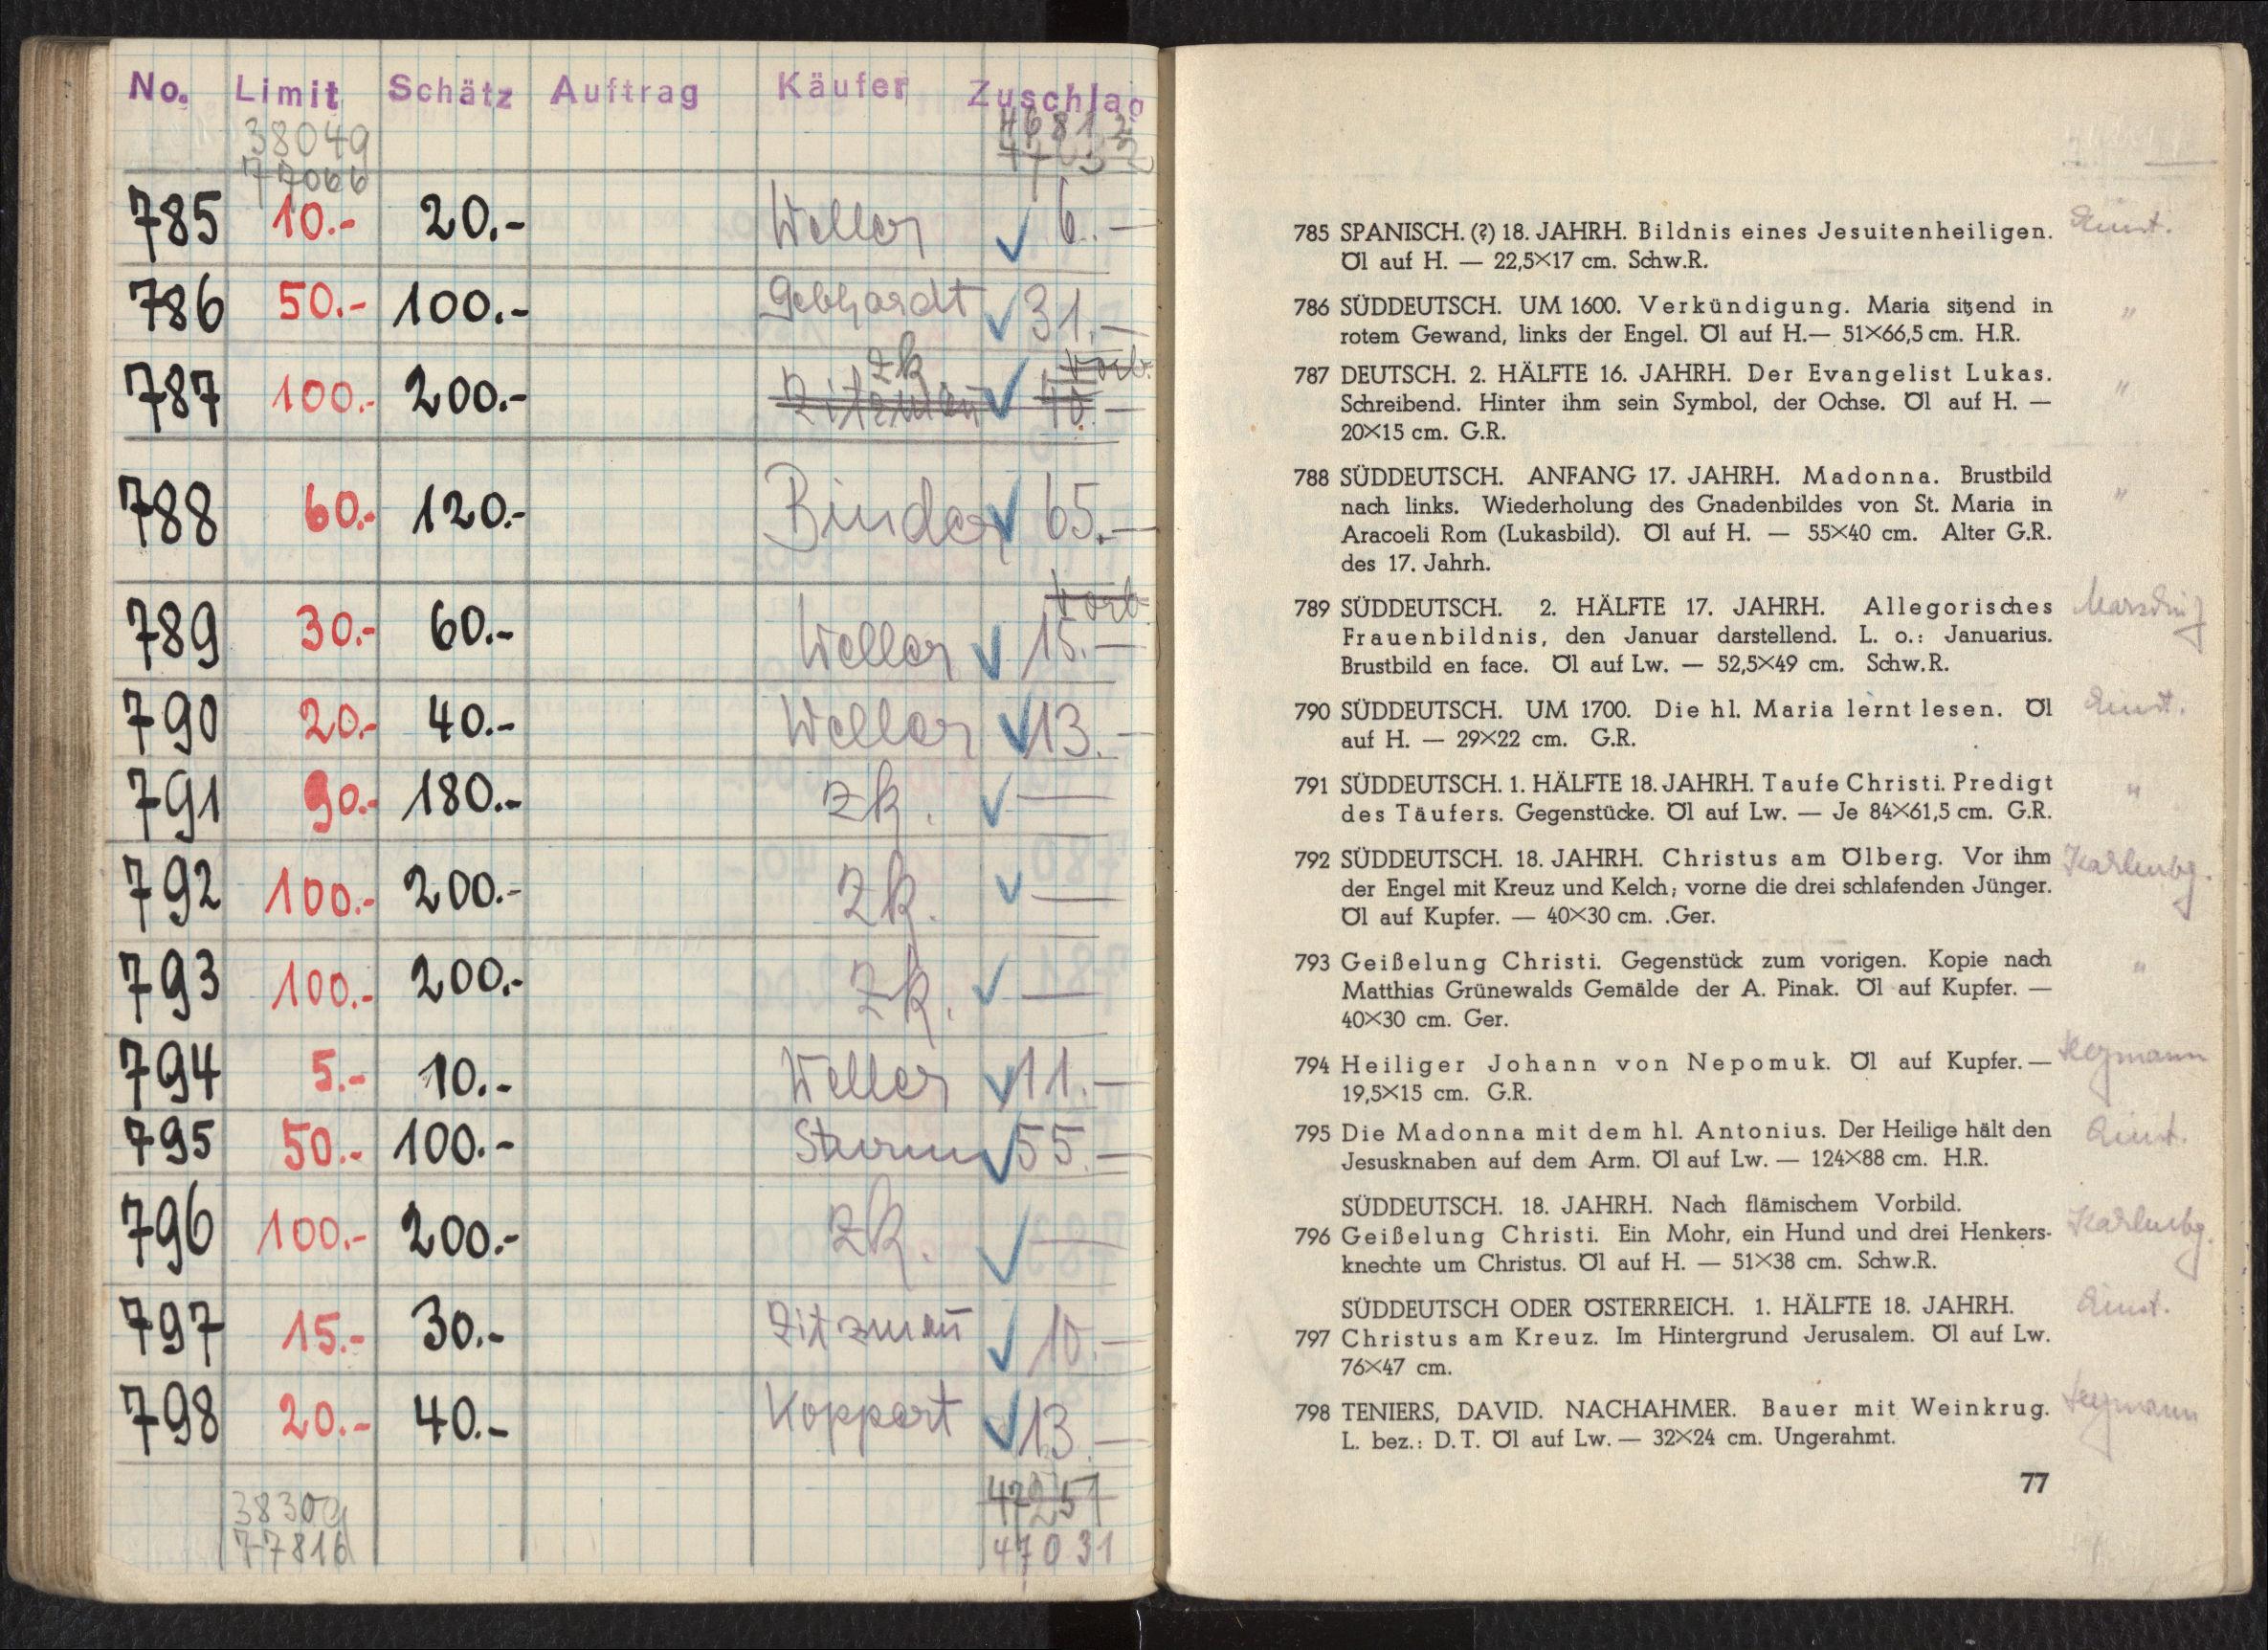 No. Limit Schätz Auftrag Käufer Zuschlag
38049 46812
77066
785 10.- 20.- Weller 6.-
786 50.- 100.- Gebhardt 31.-
787 100.- 200.- zk Zitzman 40.- Vorb.
788 60.- 120.- Binder 65.-
789 30.- 60.- Weller 15.- Vorb
790 20.- 40.- Weller 13.-
791 90.- 180.- zk. —
792 100.- 200.- zk. —
793 100.- 200.- zk. —
794 5.- 10.- Weller 11.-
795 50.- 100.- Sturm 55.-
796 100.- 200.- zk. —
797 15.- 30.- Zitzman̄ 10.-
798 20.- 40.- Koppert 13.-
38309 47251
77816 47031
785 SPANISCH. (?) 18. JAHRH. Bildnis eines Jesuitenheiligen.
Öl auf H. — 22,5×17 cm. Schw.R.
786 SÜDDEUTSCH. UM 1600. Verkündigung. Maria sitzend in "
rotem Gewand, links der Engel. Öl auf H.— 51×66,5 cm. H.R.
787 DEUTSCH. 2. HÄLFTE 16. JAHRH. Der Evangelist Lukas. "
Schreibend. Hinter ihm sein Symbol, der Ochse. Öl auf H. —
20×15 cm. G.R.
788 SÜDDEUTSCH. ANFANG 17. JAHRH. Madonna. Brustbild "
nach links. Wiederholung des Gnadenbildes von St. Maria in
Aracoeli Rom (Lukasbild). Öl auf H. — 55×40 cm. Alter G.R.
des 17. Jahrh.
789 SÜDDEUTSCH. 2. HÄLFTE 17. JAHRH. Allegorisches
Frauenbildnis, den Januar darstellend. L. o.: Januarius.
Brustbild en face. Öl auf Lw. — 52,5×49 cm. Schw.R.
790 SÜDDEUTSCH. UM 1700. Die hl. Maria lernt lesen. Öl
auf H. — 29×22 cm. G.R.
791 SÜDDEUTSCH. 1. HÄLFTE 18. JAHRH. Taufe Christi. Predigt "
des Täufers. Gegenstücke. Öl auf Lw. — Je 84×61,5 cm. G.R.
792 SÜDDEUTSCH. 18. JAHRH. Christus am Ölberg. Vor ihm
der Engel mit Kreuz und Kelch; vorne die drei schlafenden Jünger.
Öl auf Kupfer. — 40×30 cm. .Ger.
793 Geißelung Christi. Gegenstück zum vorigen. Kopie nach "
Matthias Grünewalds Gemälde der A. Pinak. Öl auf Kupfer. —
40×30 cm. Ger.
794 Heiliger Johann von Nepomuk. Öl auf Kupfer. —
19,5×15 cm. G.R.
795 Die Madonna mit dem hl. Antonius. Der Heilige hält den
Jesusknaben auf dem Arm. Öl auf Lw. — 124×88 cm. H.R.
SÜDDEUTSCH. 18. JAHRH. Nach flämischem Vorbild.
796 Geißelung Christi. Ein Mohr, ein Hund und drei Henkers-
knechte um Christus. Öl auf H. — 51×38 cm. Schw.R.
SÜDDEUTSCH ODER ÖSTERREICH. 1. HÄLFTE 18. JAHRH.
797 Christus am Kreuz. Im Hintergrund Jerusalem. Öl auf Lw.
76×47 cm.
798 TENIERS, DAVID. NACHAHMER. Bauer mit Weinkrug.
L. bez.: D.T. Öl auf Lw. — 32×24 cm. Ungerahmt.
77